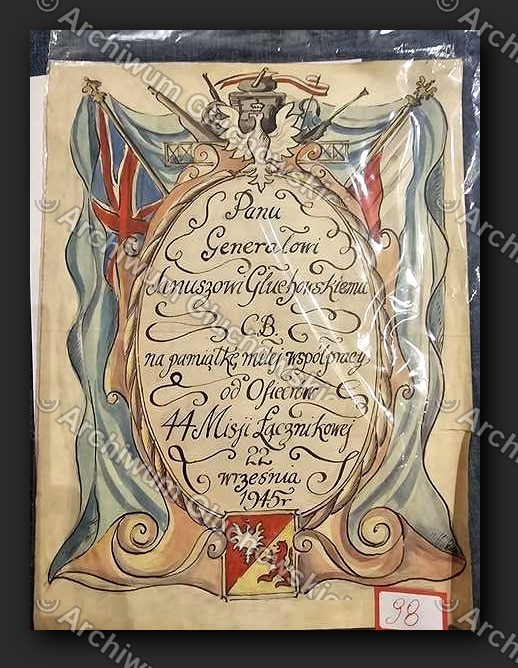 Panu
Generałowi
Januszowi Głuchowskiemu
C.B.
na pamiątkę miłej współpracy
od Oficerów
44 Misji Łącznikowej
22
września
1945r
98
© Archiwum Głuchowskich